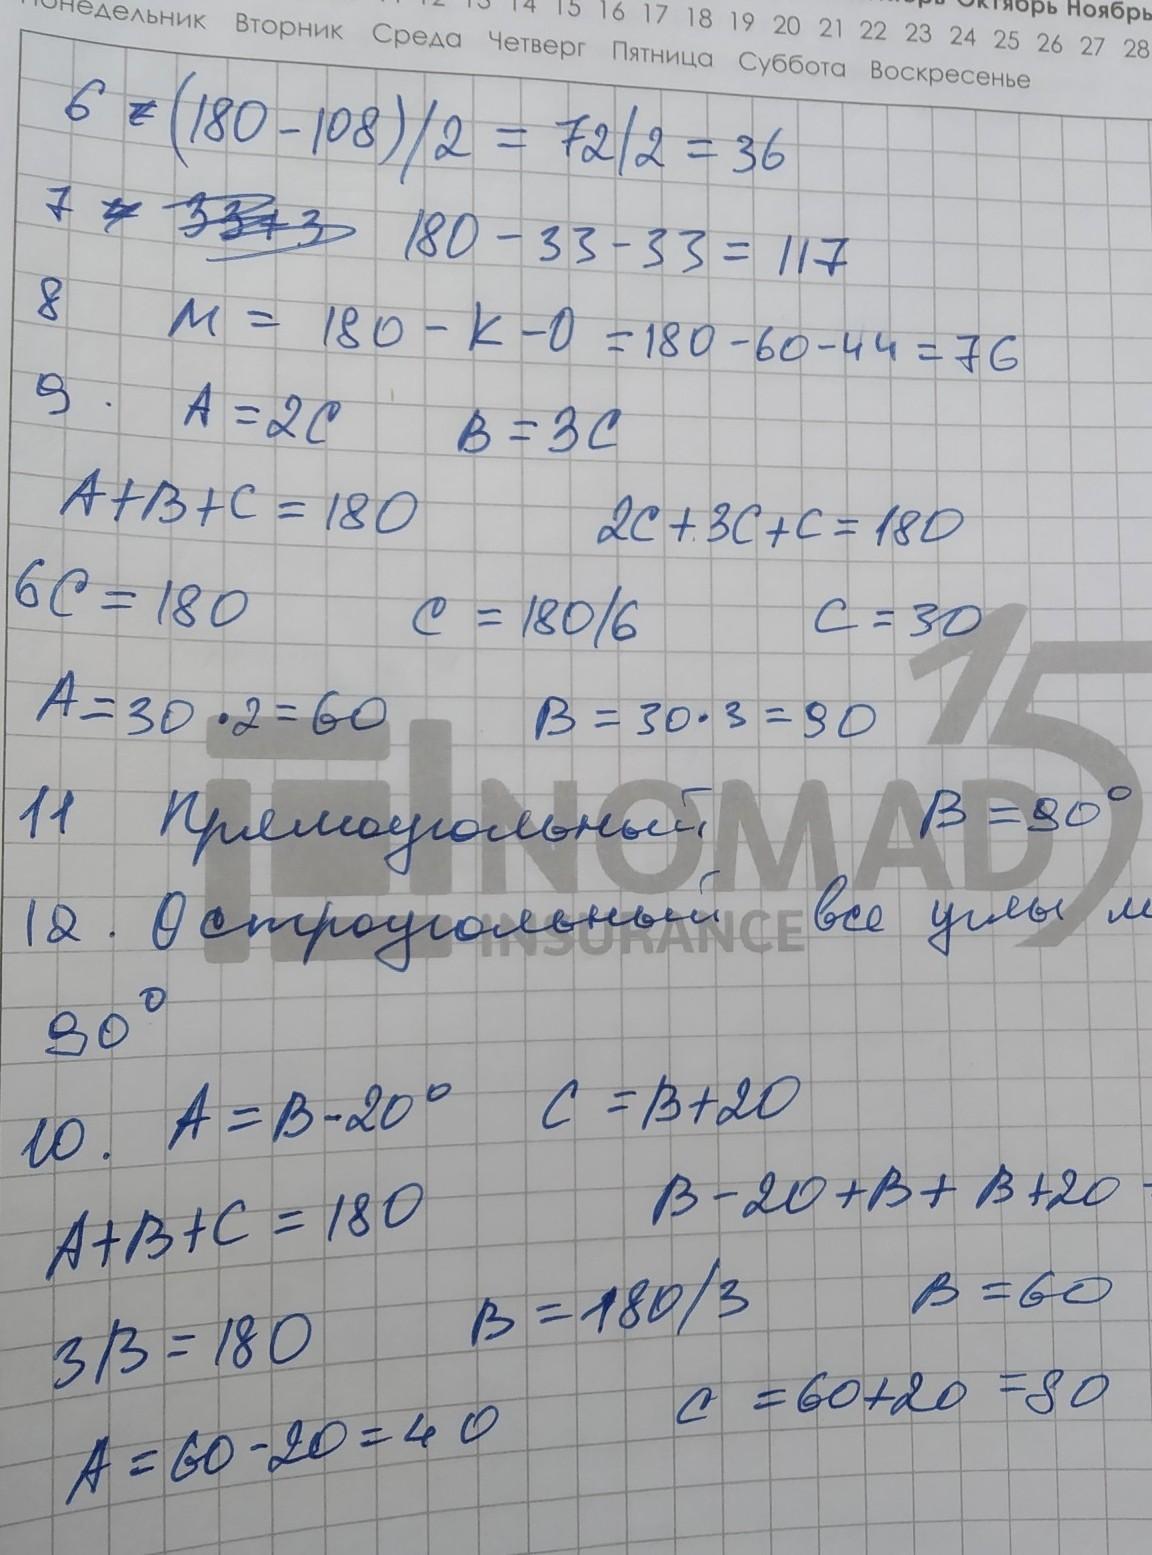 13 14 15 16 17 18 19 20 21 22 23 24 25 26 27 28
Октябрь Ноябрь
Понедельник Вторник Среда Четверг Пятница Суббота Воскресенье
6 = (180-108)/2 = 72/2 = 36
7 180-33-33 = 117
8 M = 180 - K - O = 180-60-44 = 76
9. A = 2C B = 3C
A+B+C = 180 2C+3C+C = 180
6C = 180 C = 180/6 C = 30
A = 30 · 2 = 60 B = 30 · 3 = 90
11 Прямоугольный B = 90°
12. Остроугольный все углы м
90°
10. A = B-20° C = B+20
A+B+C = 180 B-20+B+B+20
3B = 180 B = 180/3 B = 60
A = 60-20 = 40 C = 60+20 = 80
15
NOMAD
INSURANCE